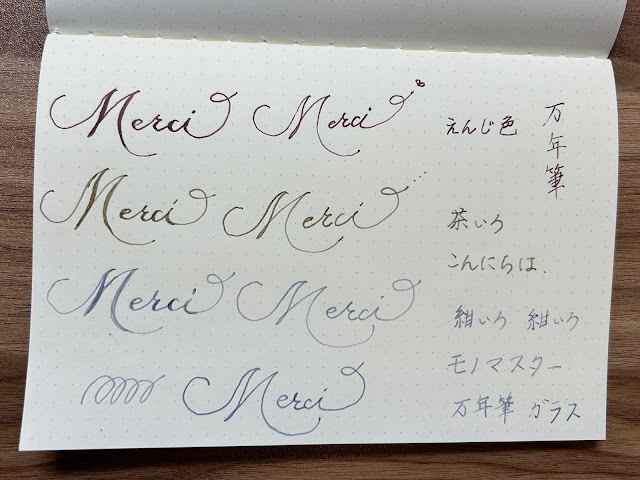 Merci Merci えんじ色
万年筆
Merci Merci 茶いろ
こんにちは.
Merci Merci 紺いろ 紺いろ
モノマスター
Merci 万年筆 ガラス